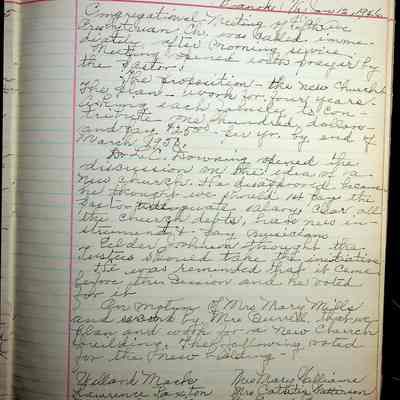 Roanoke, Va. Jan 12, 1946
Congregational Meeting of 5th Ave
Presbyterian Ch. was called imme-
diately after morning service.
Meeting opened with prayer by
the Pastor.
The proposition - the new Church
The plan - work for four years.
asking each member to con-
tribute one hundred dollars
and pay $25.00 per yr. by end of
March 1950.
Dr. L.C. Downing opened the
discussion on the idea of a
new church. He disapproved because
he thought we should 1st pay the
Pastor adequate salary, clear all
the church debts, have new in-
strument & pay musician
Elder Johnson thought the
Trustees should take the initiative
He was reminded that it came
before the Session and he voted
for it.
On motion of Mrs Mary Mills
and second by Mrs Burrell, that we
plan and work for a new Church
building. The following voted
for the new building -
Willard Mack Mrs Mary Williams
Lawrence Paxton Mrs Patterson